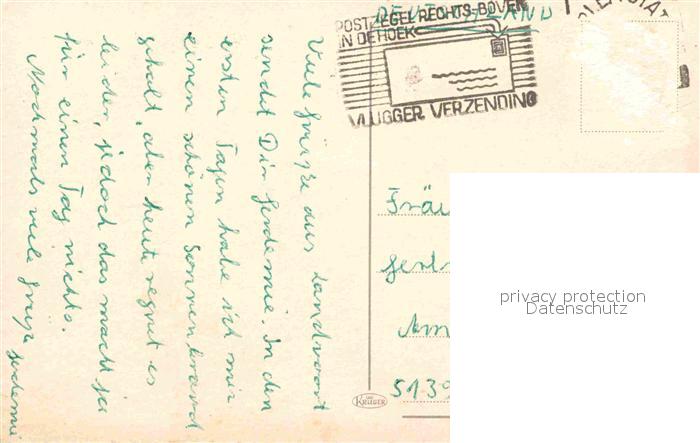 Viele Grüße aus Zandvoort
sendet Dir Gerdemie. In den
ersten Tagen habe ich mir
einen schönen Sonnenbrand
geholt, aber heute regnet es
leider, jedoch das macht ja
für einen Tag nichts.
Nochmals viele Grüße
POSTZEGEL RECHTS-BOVEN
IN DE HOEK
VLUGGER VERZENDING
Fräu
Am
5139
KRÜGER
privacy protection
Datenschutz